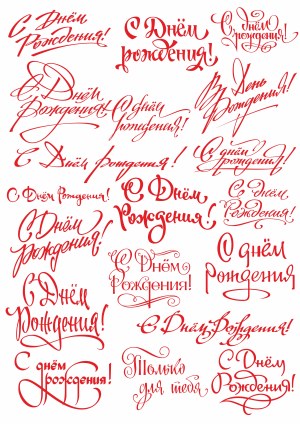 С Днём
Рождения!
С Днём
рождения!
С днём
рождения!
С Днём
Рождения!
С днём
Рождения!
В День
Рождения!
С Днём рождения!
С днём
рождения!
С Днём Рождения!
С Днём
Рождения!
С Днём
Рождения!
С Днём
рождения!
С Днём
Рождения!
С днём
рождения
С Днём
Рождения!
С Днём Рождения!
С днём
рождения!
Только
для тебя
С Днём
Рождения!